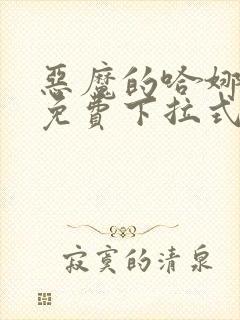 惡魔的哈娜
免費下拉式
寂寞的清泉